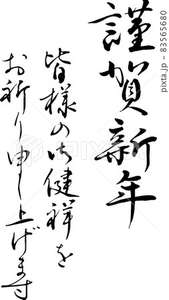 謹賀新年
皆様の御健祥を
お祈り申し上げます
pixta.jp - 83565680